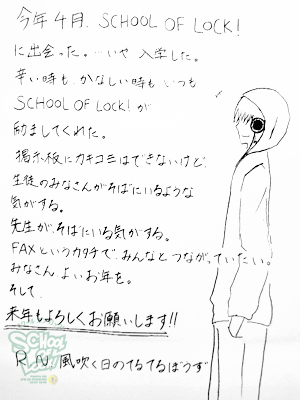 今年4月、SCHOOL OF LOCK!
に出会った。…いや入学した。
辛い時も、かなしい時も、いつも
SCHOOL OF LOCK! が
励ましてくれた。
掲示板にカキコミはできないけど、
生徒のみなさんがそばにいるような
気がする。
先生が、そばにいる気がする。
FAXというカタチで、みんなとつながっていたい。
みなさん、よいお年を。
そして、
来年もよろしくお願いします!!
SCHOOL OF LOCK!
R.N. 風吹く日のてるてるぼうず